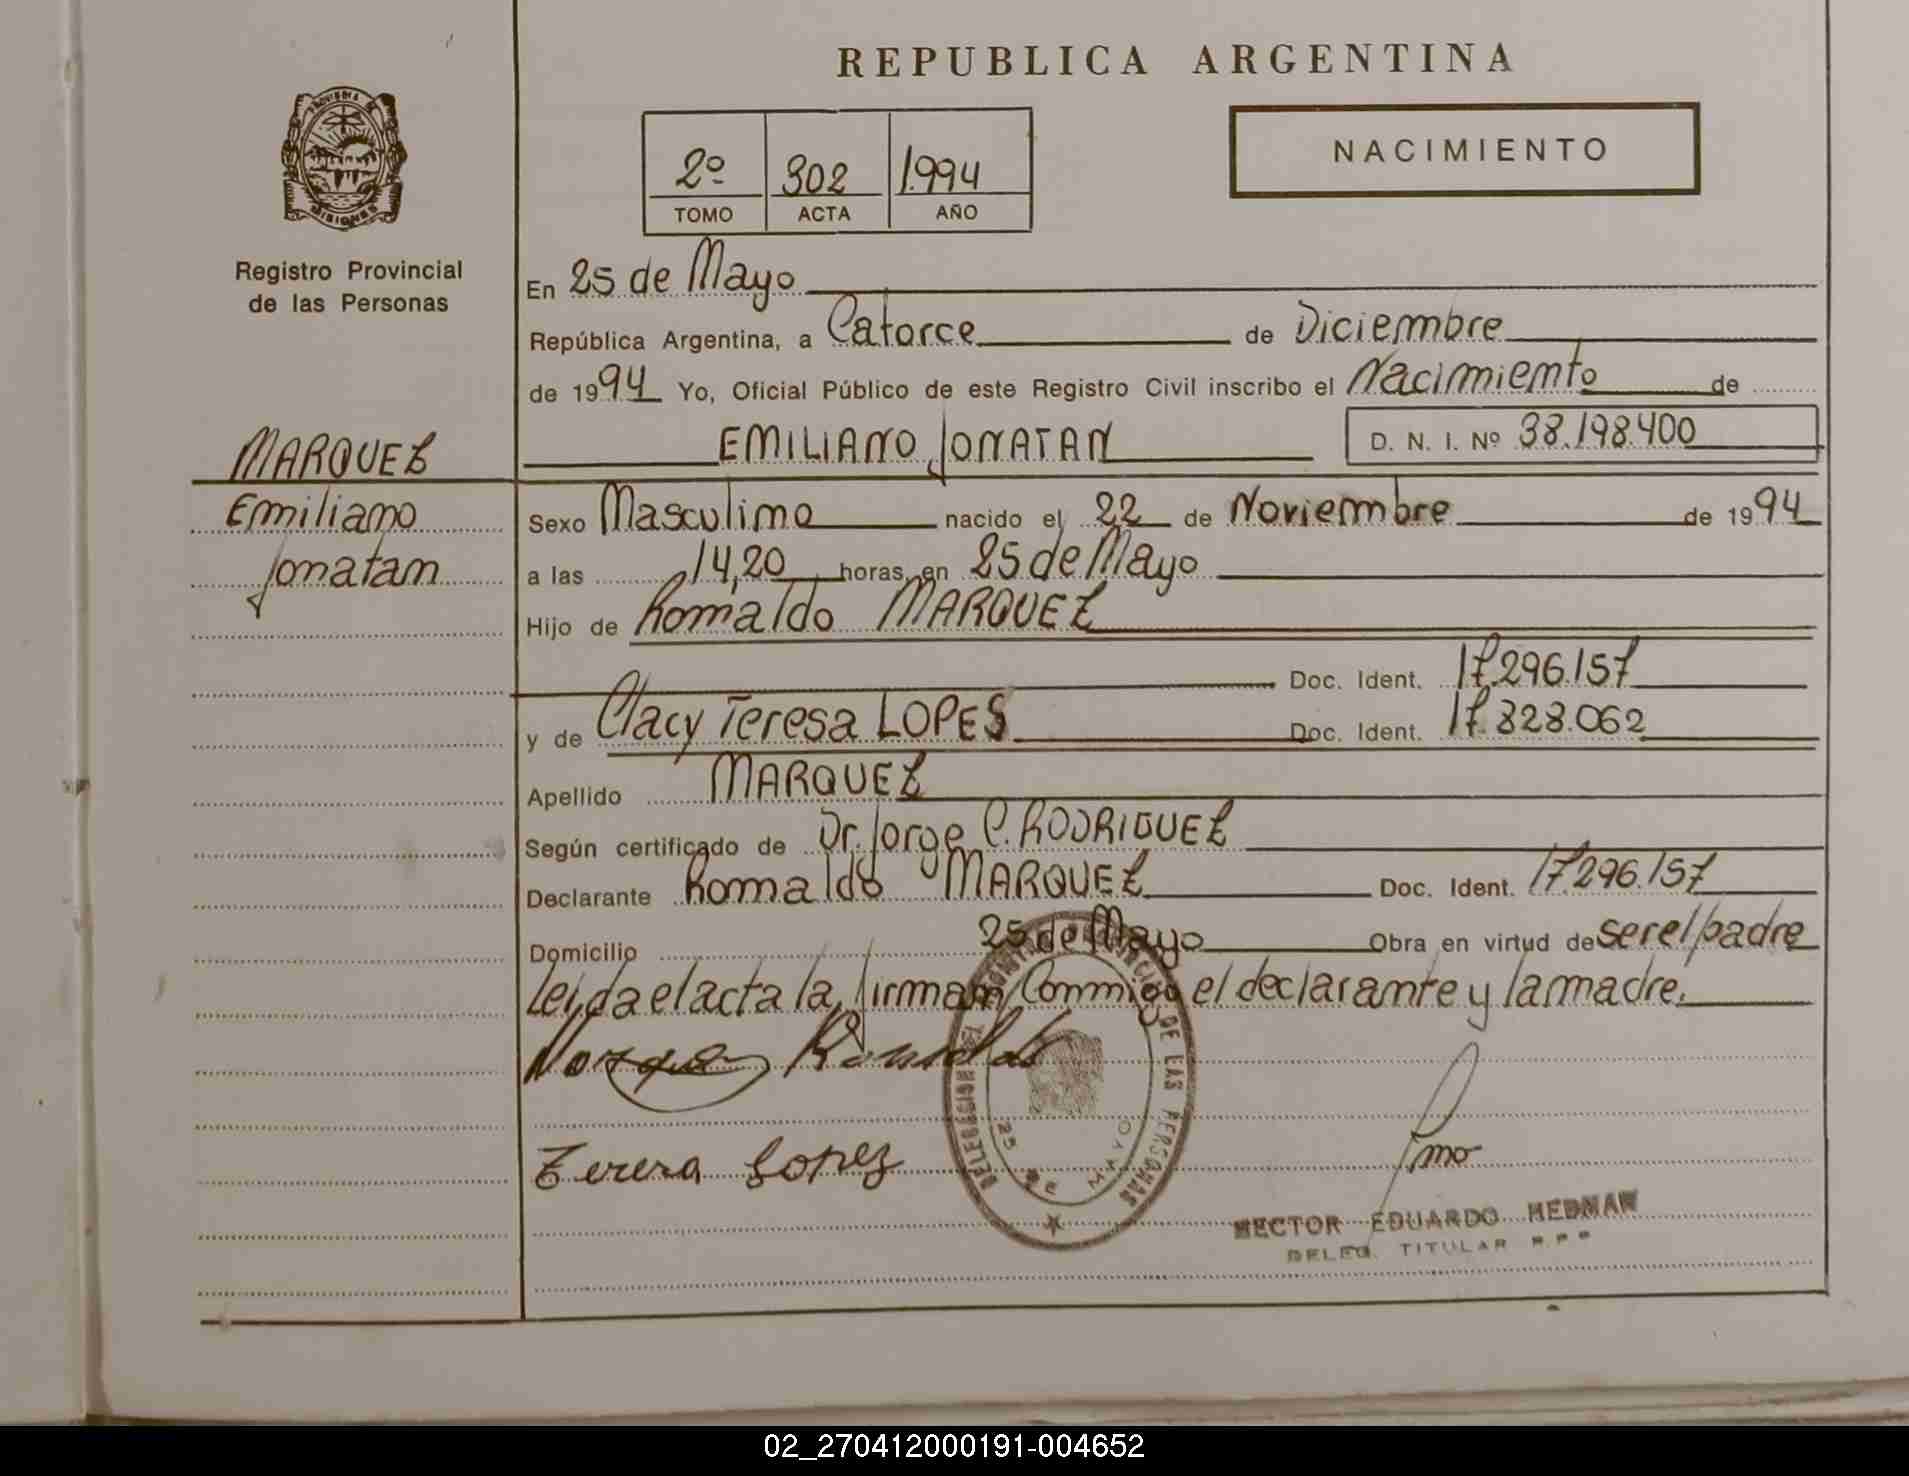 REPUBLICA ARGENTINA
PROVINCIA DE
MISIONES
Registro Provincial
de las Personas
2º 302 1994
TOMO ACTA AÑO
NACIMIENTO
En 25 de Mayo
República Argentina, a Catorce de Diciembre
de 1994 Yo, Oficial Público de este Registro Civil inscribo el Nacimiento de
MARQUEZ
EMILIANO JONATAN D. N. I. Nº 38.198.400
Emiliano
Jonatan
Sexo Masculino nacido el 22 de Noviembre de 1994
a las 14,20 horas, en 25 de Mayo
Hijo de Romaldo MARQUEZ
Doc. Ident. 17.296.157
y de Clacy Teresa LOPES Doc. Ident. 17.828.062
Apellido MARQUEZ
Según certificado de Dr. Jorge C. RODRIGUEZ
Declarante Romaldo MARQUEZ Doc. Ident. 17.296.157
Domicilio 25 de Mayo Obra en virtud de ser el padre
Leida el acta la firman Conmigo el declarante y la madre.
Marquez Romaldo
Teresa Lopez
DE LAS PERSONAS
25 DE MAYO
HECTOR EDUARDO HEDMAN
DELEG. TITULAR R.P.P
02_270412000191-004652